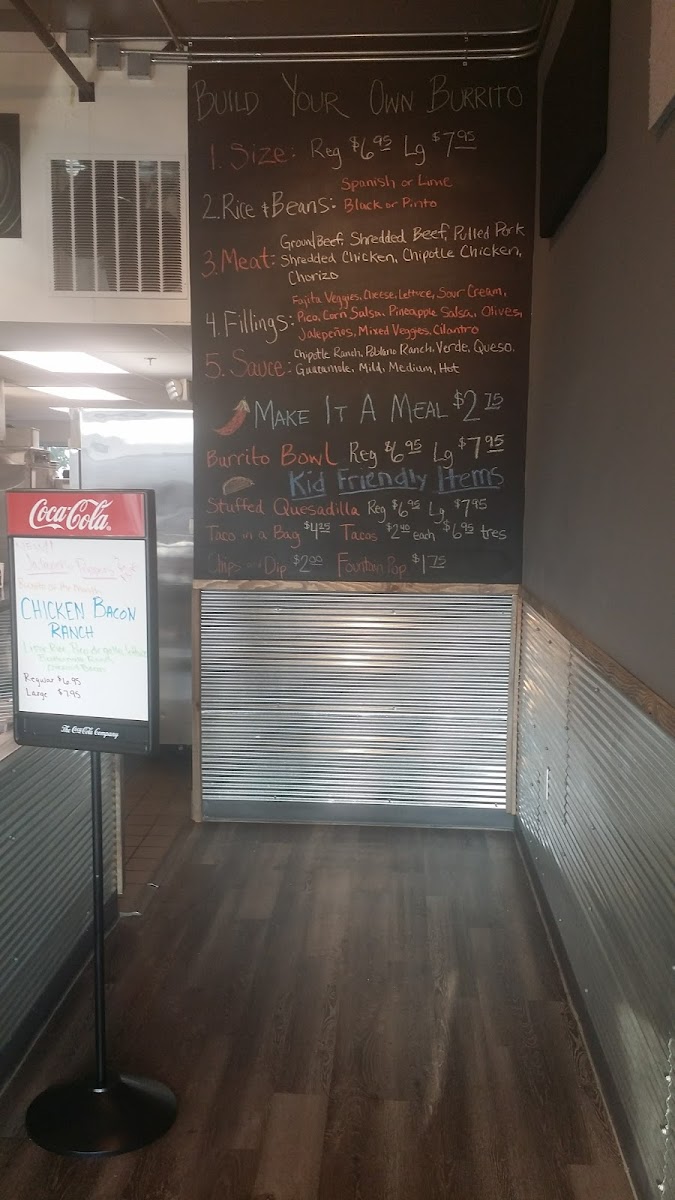 BUILD YOUR OWN BURRITO
1. Size: Reg $6.95 Lg $7.95
Spanish or Lime
2. Rice + Beans: Black or Pinto
Ground Beef, Shredded Beef, Pulled Pork
3. Meat: Shredded Chicken, Chipotle Chicken,
Chorizo
Fajita Veggies, Cheese, Lettuce, Sour Cream,
4. Fillings: Pico, Corn Salsa, Pineapple Salsa, Olives,
Jalepeños, Mixed Veggies, Cilantro
Chipotle Ranch, Poblano Ranch, Verde, Queso,
5. Sauce: Guacamole, Mild, Medium, Hot
MAKE IT A MEAL $2.75
Burrito Bowl Reg $6.95 Lg $7.95
Kid Friendly Items
Stuffed Quesadilla Reg $6.95 Lg $7.95
Taco in a Bag $4.25 Tacos each $6.95 tres
Chips and Dip $2.00 Fountain Pop $1.75
Coca-Cola
Burrito of the Month
CHICKEN BACON
RANCH
Regular $6.95
Large $7.95
The Coca-Cola Company